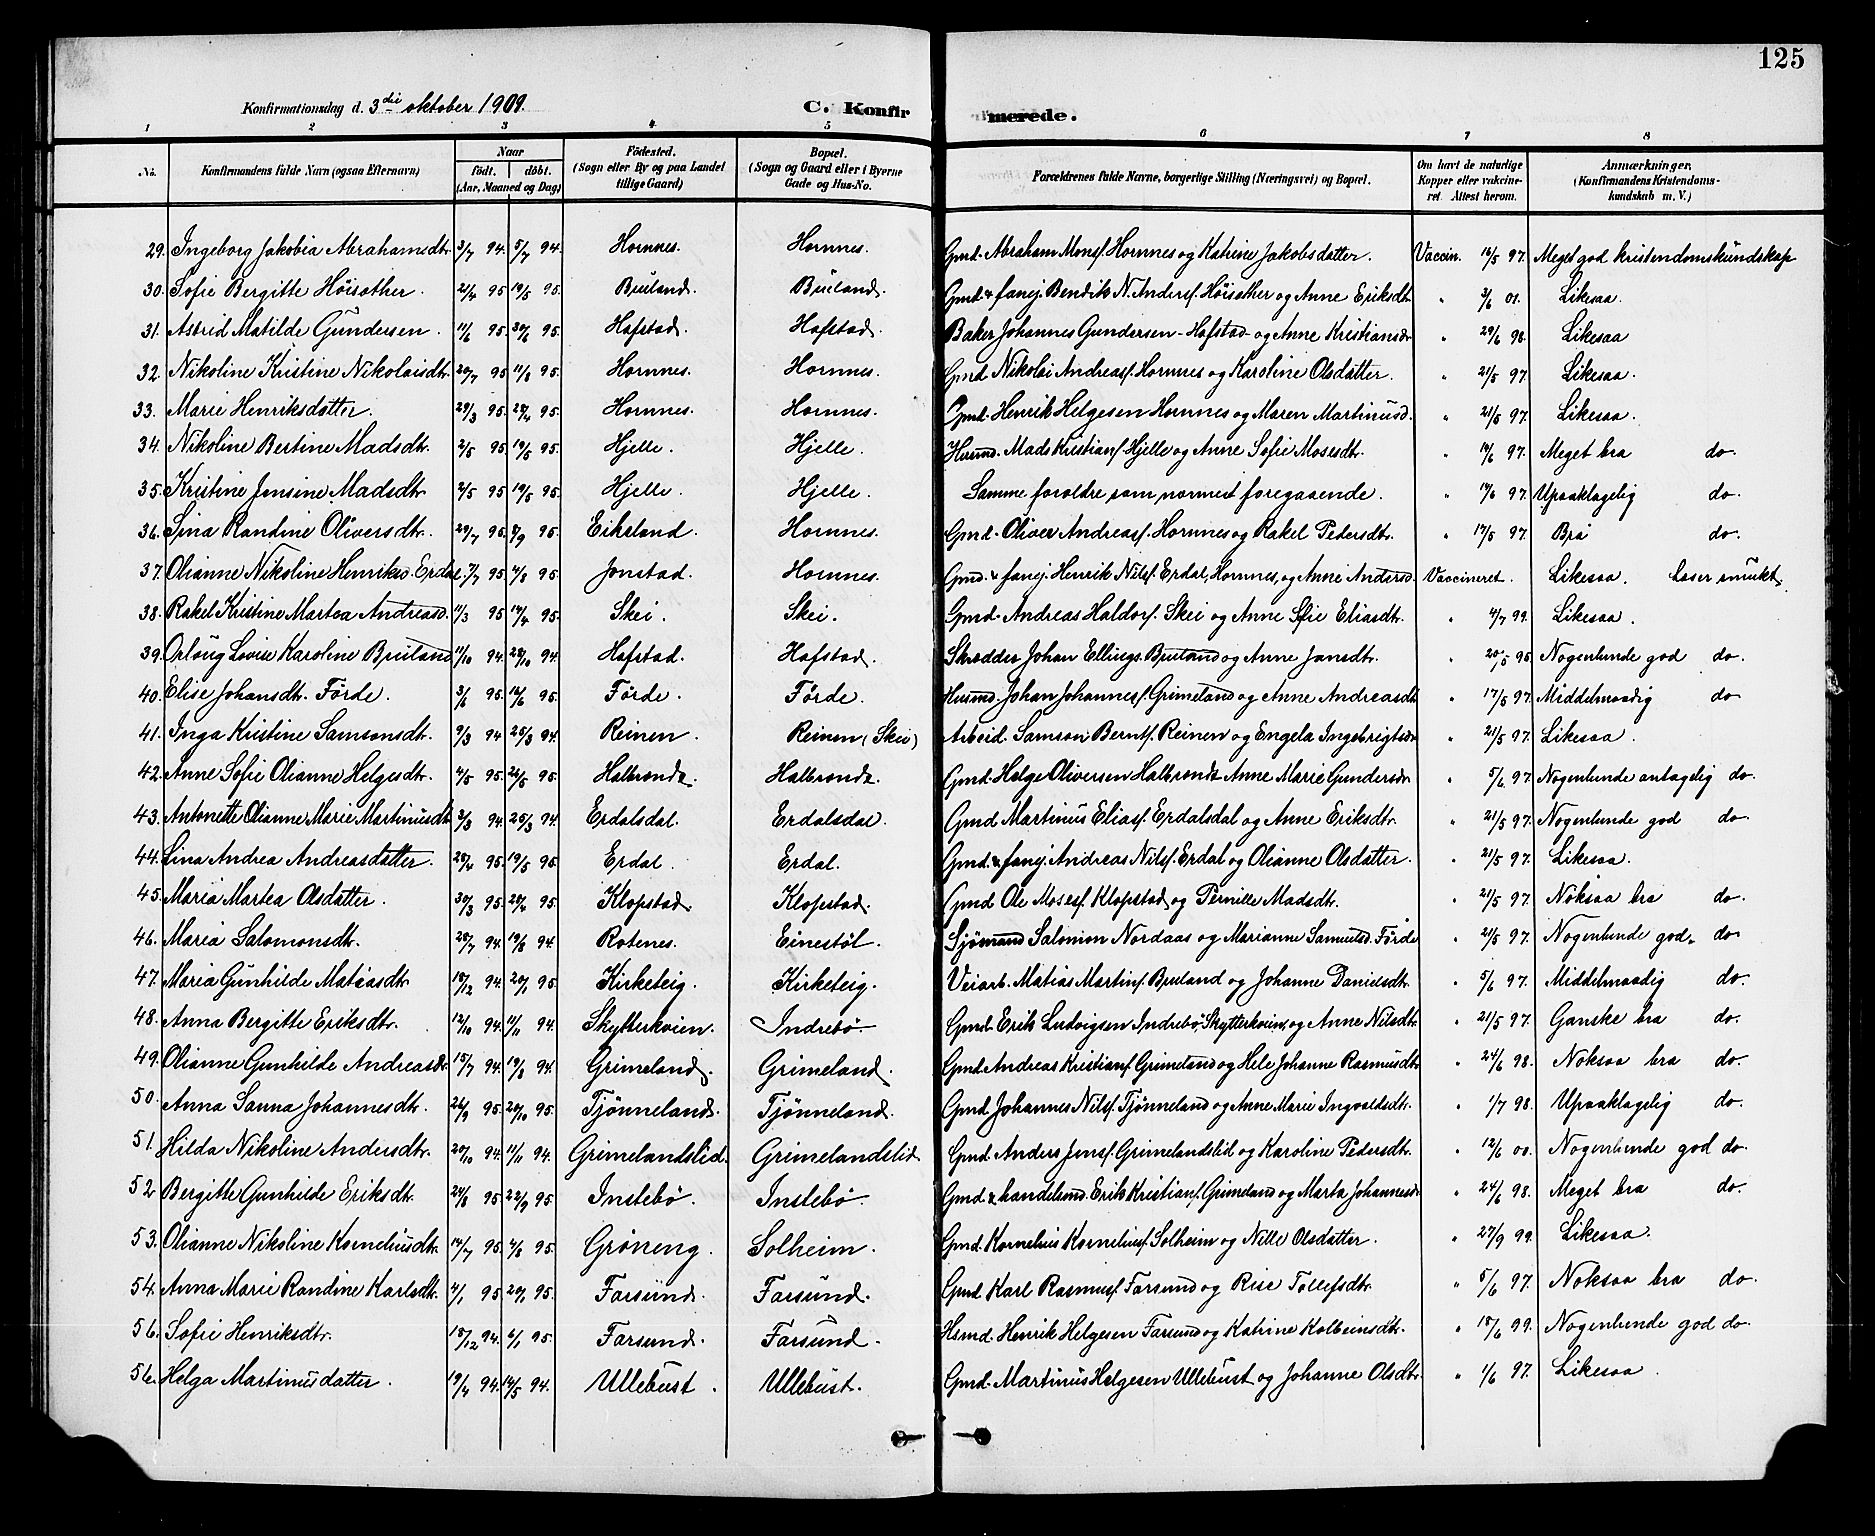 125
Konfirmationsdag d. 3die oktober 1909. C. Konfirmerede.
1 2 3 4 5 6 7 8
No. Konfirmandens fulde Navn (ogsaa Efternavn) Naar født. døbt. (Aar, Maaned og Dag) Fødested. (Sogn eller By og paa Landet tillige Gaard) Bopæl. (Sogn og Gaard eller i Byerne Gade og Hus-No. Forældrenes fulde Navne, borgerlige Stilling (Næringsvei) og Bopæl. Om havt de naturlige Kopper eller vakcineret. Attest herom. Anmærkninger. (Konfirmandens Kristendomskundskab m. V.)
29. Ingeborg Jakobia Abrahamsdtr. 3/7 94. 5/7 94. Hornnes. Hornnes. Gmd. Abraham Monsf. Hornnes og Katrine Jakobsdatter. Vaccin. 16/5 97. Meget god kristendomskundskap
30. Sofie Bergitte Höisæther. 21/4 95 19/5 95. Bruland. Bruland. Gmd. & fanej. Bendik N. Andersf. Höisæther og Anne Eriksdt " 3/6 01. Likesaa.
31. Astrid Matilde Gundersen. 11/6 95. 30/6 95. Hafstad. Hafstad. Baker Johannes Gundersen - Hafstad - og Anne Kristiansdr " 29/6 98. Likesaa
32. Nikoline Kristine Nikolaisdtr. 20/7 95 11/8 95. Hornnes. Hornnes. Gmd Nikolai Andreasf. Hornnes og Karoline Olsdatter. " 21/5 97. Likesaa.
33. Marie Henriksdatter. 29/3 95. 28/4 95. Hornnes. Hornnes. Gmd. Henrik Helgesen Hornnes og Maren Martinusd. " 21/5 97. Likesaa.
34. Nikoline Bertine Madsdtr. 2/5 95. 19/5 95. Hjelle. Hjelle. Husmd. Mads Kristianf. Hjelle og Anne Sofie Mosesdtr. " 14/6 97. Meget bra do.
35. Kristine Jensine Madsdtr 2/5 95 19/5 95. Hjelle. Hjelle. Samme foreldre som nærmest foregaaende. " 14/6 97. Upaaklagelig do.
36. Lina Randine Oliversdtr. 29/7 95. 8/9 95. Eikeland. Hornnes. Gmd. Oliver Andreasf. Hornnes og Rakel Pedersdtr. " 17/5 97. Bra do.
37. Olianne Nikoline Henriksd. Erdal. 7/7 95 4/8 95. Jonstad. Hornnes. Gmd. & fanej. Henrik Nilsf. Erdal, Hornnes, og Anne Andersd. Vaccineret. Likesaa. Læser smukt.
38. Rakel Kristine Martea Andreasd. 11/3 95 14/4 95. Skei. Skei. Gmd. Andreas Haldorf. Skei og Anne Sofie Eliasdtr. " 4/7 99. Likesaa.
39. Orlaug Lovise Karoline Bruland 11/10 94. 28/10 94. Hafstad. Hafstad. Skrædder Johan Ellings. Bruland og Anne Jansdtr. " 20/5 95. Nogenlunde god do.
40. Elise Johansdtr. Førde. 3/6 95. 16/6 95. Førde. Førde. Husmd. Johan Johannesf. Grimeland og Anne Andreasdtr " 17/5 97. Middelmaadig do
41. Inga Kristine Samsonsdtr. 9/3 94 25/3 94. Reinen. Reinen (Skei) Arbeid. Samson Berntf. Reinen og Engela Ingebrigtsdr " 21/5 97. Likesaa.
42. Anne Sofie Olianne Helgesdtr. 4/5 95. 26/5 95. Halbrendz. Halbrendz. Gmd. Helge Oliversen Halbrendz Anne Marie Gundersdr " 5/6 97. Nogenlunde antagelig do.
43. Antonette Olianne Marie Martinusdtr 3/3 94. 25/3 94. Erdalsdal. Erdalsdal. Gmd Martinus Eliasf. Erdalsdal og Anne Eriksdtr. " 21/5 97. Nogenlunde god do.
44. Lina Andrea Andreasdatter. 28/4 95. 19/5 95. Erdal. Erdal. Gmd. & fanej. Andreas Nilsf. Erdal og Olianne Olsdatter. " 21/5 97. Likesaa.
45. Maria Martea Olsdatter. 30/3 95. 28/4 95. Klopstad. Klopstad. Gmd Ole Mosesf. Klopstad og Pernille Madsdtr. " 21/5 97. Noksaa bra do.
46. Maria Salomonsdtr. 28/7 94. 19/8 94. Rotenes. Einestöl. Sjömand Salomon Nordaas og Marianne Samuelsd. Förde " 21/5 97. Nogenlunde god. do
47. Maria Gunhilde Matiasdtr 18/12 94. 20/1 95. Kirketeig. Kirketeig. Veiarb. Matias Martinf. Bruland og Johanne Danielsdtr. " 5/6 97. Middelmaadig do.
48. Anna Bergitte Eriksdtr. 12/10 94. 11/11 94. Skytterkvien. Indrebö. Gmd. Erik Ludvigsen Indrebö, Skytterkvien, og Anne Nilsdtr. " 21/5 97. Ganske bra do.
49. Olianne Gunhilde Andreasdr 15/7 94. 19/8 94. Grimeland. Grimeland. Gmd. Andreas Kristianf. Grimeland og Hele Johanne Rasmusdtr " 24/6 98. Noksaa bra do.
50. Anna Sanna Johannesdtr. 22/9 95. 20/10 95. Tjönneland. Tjönneland. Gmd. Johannes Nilsf. Tjönneland og Anne Marie Ingvaldsdtr. " 1/7 98. Upaaklagelig do.
51. Hilda Nikoline Andersdtr. 20/10 94. 11/11 94. Grimelandslid. Grimelandslid. Gmd. Anders Jensf. Grimelandslid og Karoline Pedersdtr. " 12/6 00. Nogenlunde god do.
52 Bergitte Gunhilde Eriksdtr. 24/8 95 22/9 95 Inslebö. Inslebö. Gmd. & handelsmd. Erik Kristianf. Grimeland og Marta Johannesdr " 24/6 98. Meget bra do.
53. Olianne Nikoline Korneliusdtr. 14/7 95. 4/8 95. Gröneng. Solheim. Gmd. Kornelius Korneliusf. Solheim og Nille Olsdatter. " 27/9 99. Likesaa.
54. Anna Marie Randine Karlsdtr. 4/1 95 20/1 95. Farsund. Farsund. Gmd Karl Rasmusf. Farsund og Rise Tollefsdtr. " 5/6 97. Noksaa bra do.
55. Sofie Henriksdtr. 18/12 94. 6/1 95. Farsund. Farsund. Hsmd. Henrik Helgesen Farsund og Katrine Kolbeinsdtr. " 18/6 99. Nogenlunde god do.
56. Helga Martinusdatter. 19/4 94. 14/5 94. Ullebust. Ullebust. Gmd. Martinus Helgesen Ullebust og Johanne Olsdtr. " 1/6 97. Likesaa.